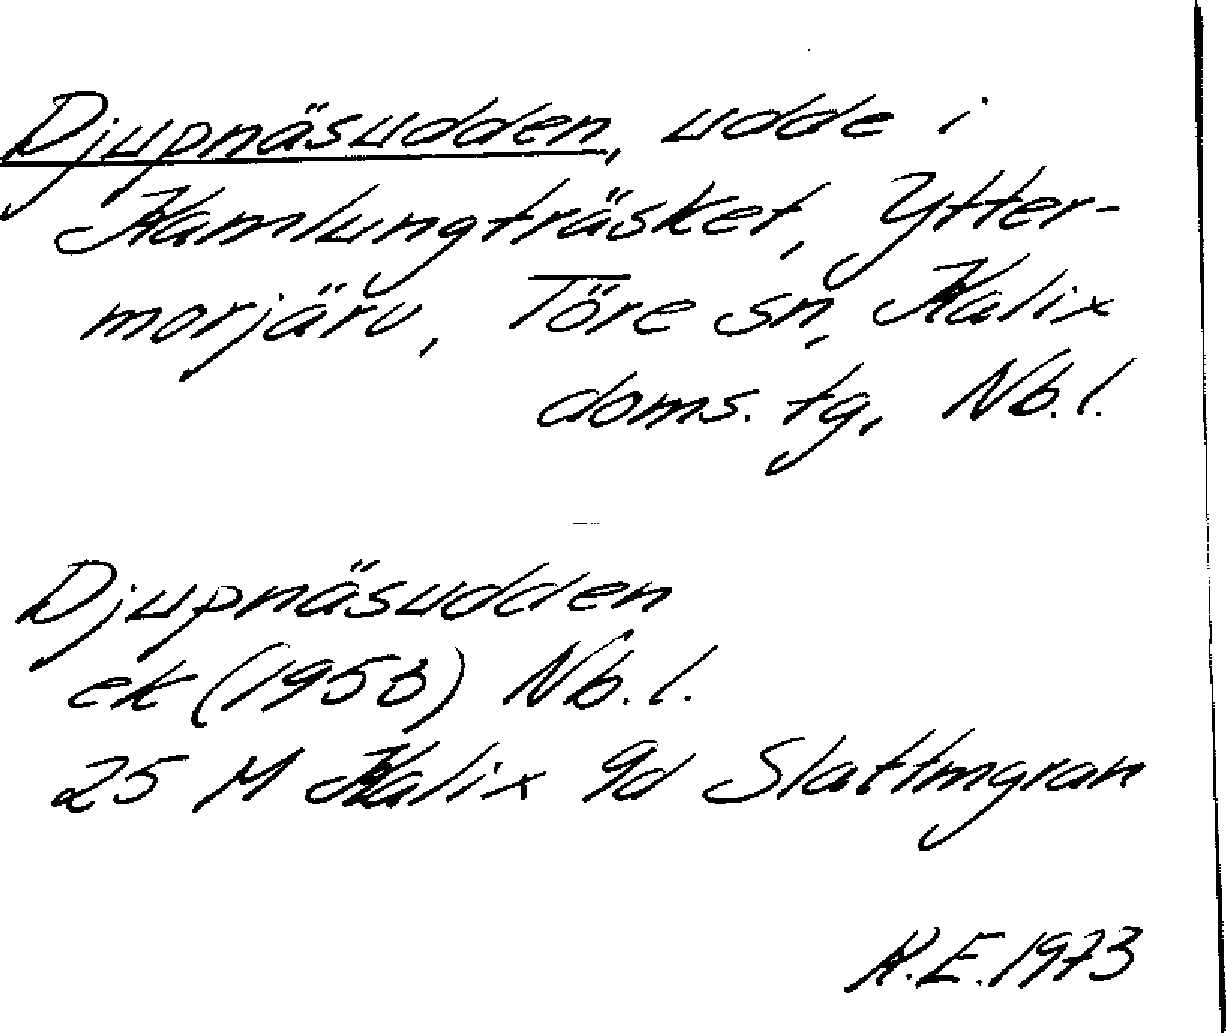 Djupnäsudden, udde i
Kamlungträsket, Ytter-
morjärv, Töre sn, Kalix
doms. tg, Nb. l.
Djupnäsudden
ek (1953) Nb. l.
25 M Kalix 9d Slattmgran
K.E. 1973